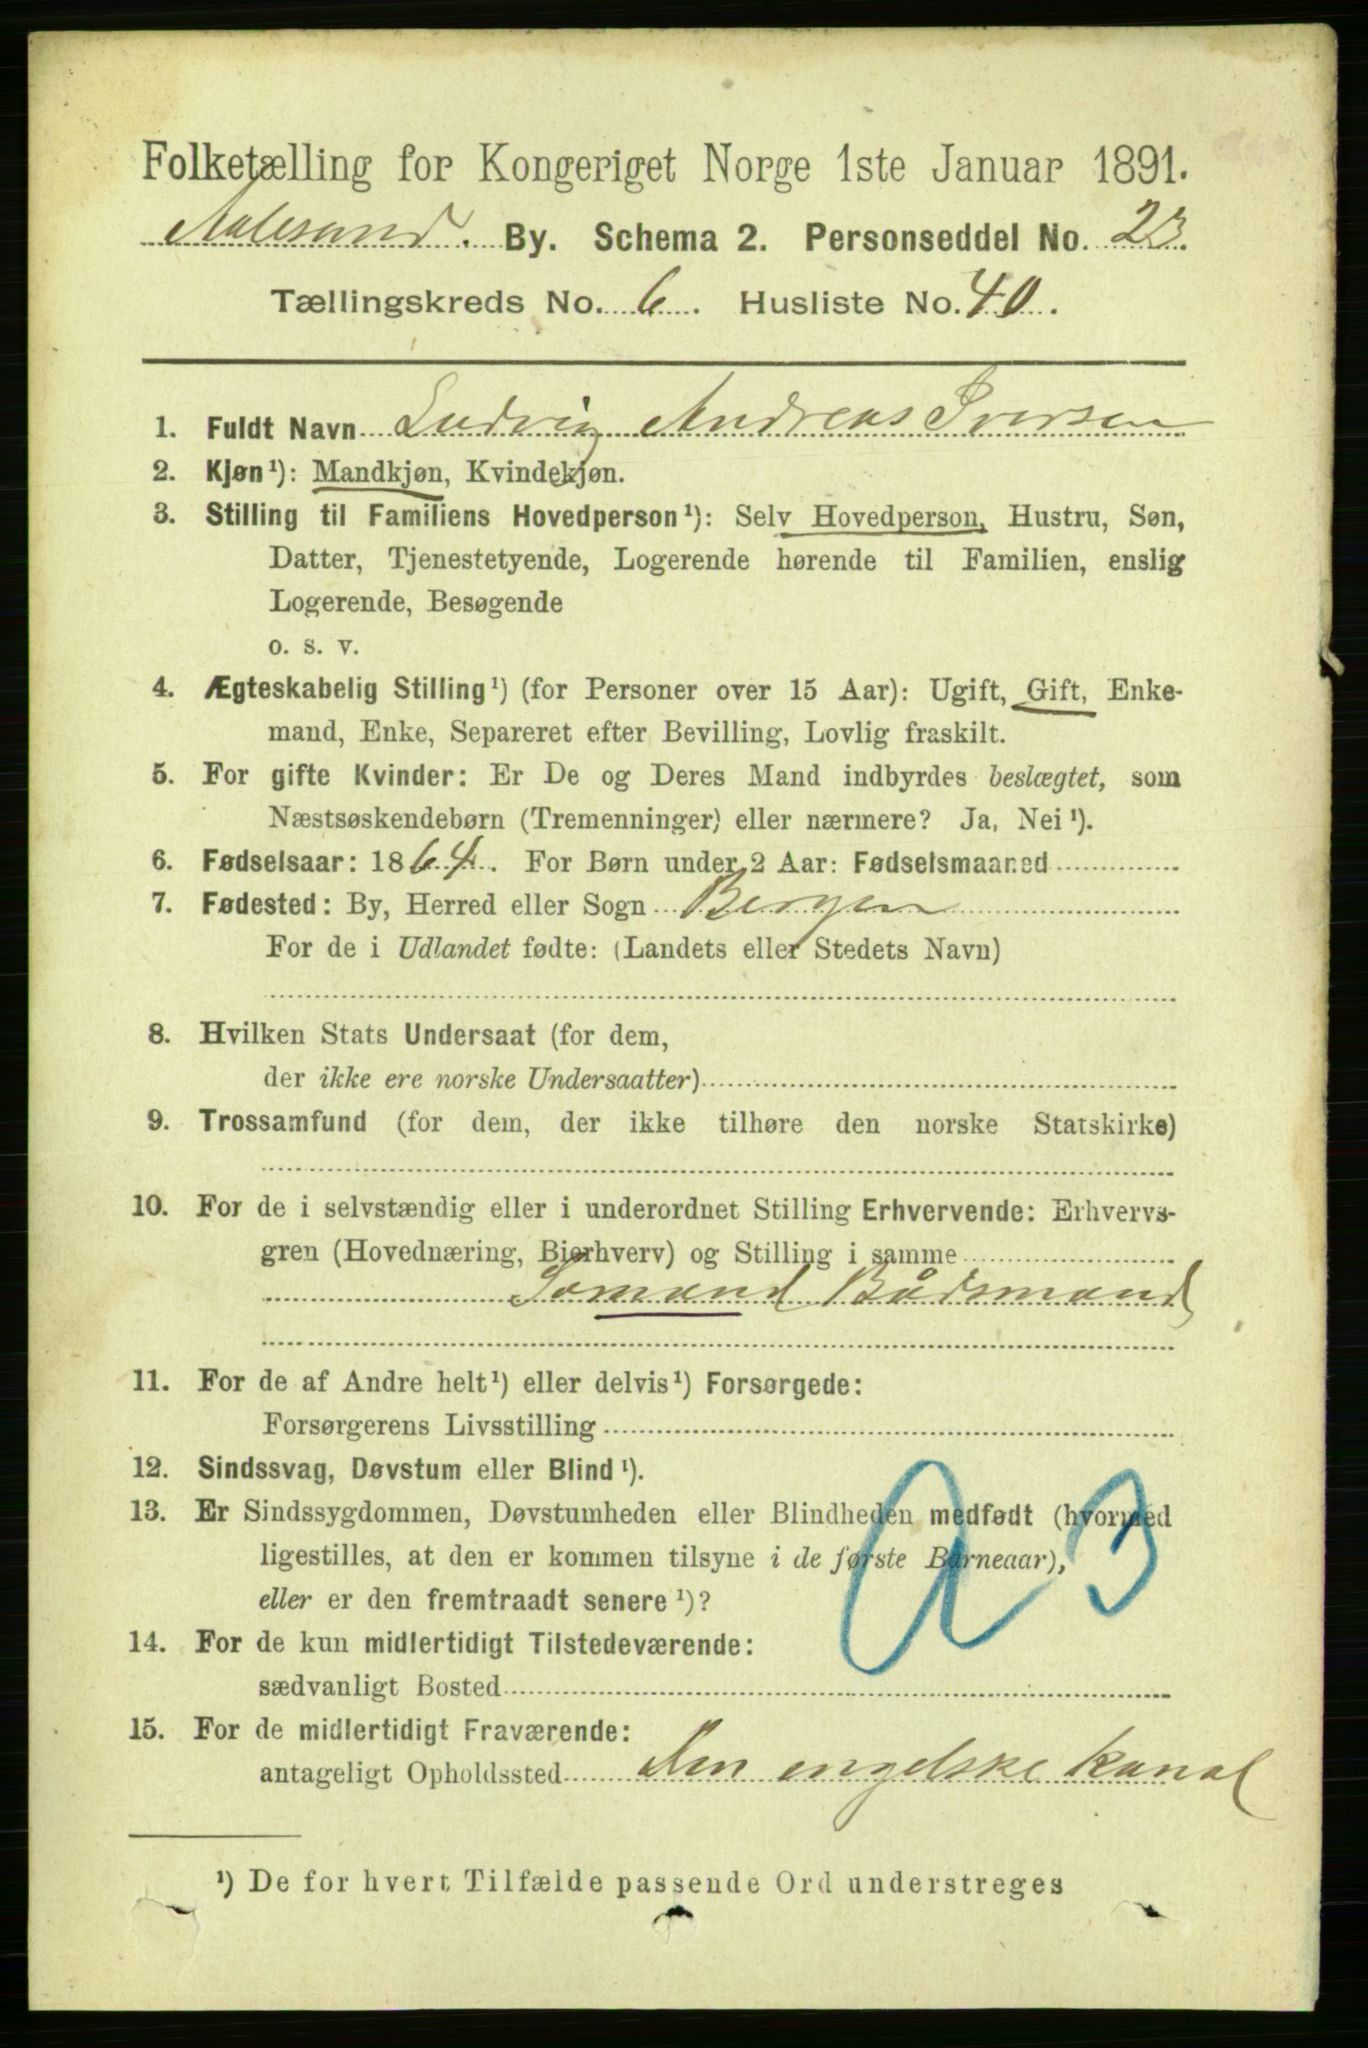 Folketælling for Kongeriget Norge 1ste Januar 1891.
Aalesund. By. Schema 2. Personseddel No. 23.
Tællingskreds No. 6. Husliste No. 40.
1. Fuldt Navn Ludvig Andreas Iversen
2. Kjøn¹): Mandkjøn, Kvindekjøn.
3. Stilling til Familiens Hovedperson¹): Selv Hovedperson, Hustru, Søn,
Datter, Tjenestetyende, Logerende hørende til Familien, enslig
Logerende, Besøgende
o. s. v.
4. Ægteskabelig Stilling¹) (for Personer over 15 Aar): Ugift, Gift, Enke-
mand, Enke, Separeret efter Bevilling, Lovlig fraskilt.
5. For gifte Kvinder: Er De og Deres Mand indbyrdes beslægtet, som
Næstsøskendebørn (Tremenninger) eller nærmere? Ja, Nei¹).
6. Fødselsaar: 1864. For Børn under 2 Aar: Fødselsmaaned
7. Fødested: By, Herred eller Sogn Bergen
For de i Udlandet fødte: (Landets eller Stedets Navn)
8. Hvilken Stats Undersaat (for dem,
der ikke ere norske Undersaatter)
9. Trossamfund (for dem, der ikke tilhøre den norske Statskirke)
10. For de i selvstændig eller i underordnet Stilling Erhvervende: Erhvervs-
gren (Hovednæring, Bierhverv) og Stilling i samme
Somand Bådsmand
11. For de af Andre helt¹) eller delvis¹) Forsørgede:
Forsørgerens Livsstilling
12. Sindssvag, Døvstum eller Blind¹).
13. Er Sindssygdommen, Døvstumheden eller Blindheden medfødt (hvormed
ligestilles, at den er kommen tilsyne i de første Barneaar),
eller er den fremtraadt senere¹)?
14. For de kun midlertidigt Tilstedeværende:
sædvanligt Bosted
15. For de midlertidigt Fraværende:
antageligt Opholdssted Den engelske kanal
¹) De for hvert Tilfælde passende Ord understreges